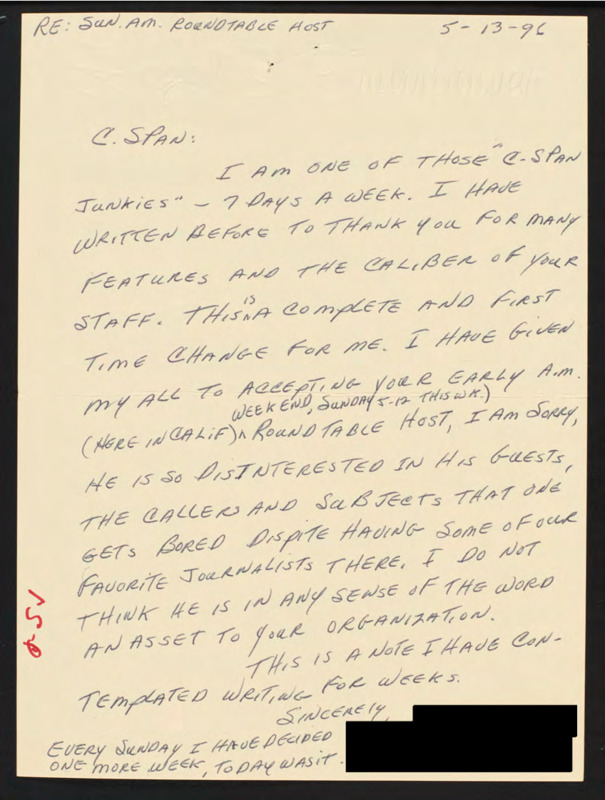 RE: SUN. AM. ROUNDTABLE HOST 5-13-96
C. SPAN:
I AM ONE OF THOSE "C-SPAN
JUNKIES" - 7 DAYS A WEEK. I HAVE
WRITTEN BEFORE TO THANK YOU FOR MANY
FEATURES AND THE CALIBER OF YOUR
STAFF. THIS IS A COMPLETE AND FIRST
TIME CHANGE FOR ME. I HAVE GIVEN
MY ALL TO ACCEPTING YOUR EARLY A.M.
WEEKEND, SUNDAY 5-12 THIS WK.)
(HERE IN CALIF) ^ ROUNDTABLE HOST, I AM SORRY,
HE IS SO DISINTERESTED IN HIS GUESTS,
THE CALLERS AND SUBJECTS THAT ONE
GETS BORED DISPITE HAVING SOME OF OUR
FAVORITE JOURNALISTS THERE. I DO NOT
THINK HE IS IN ANY SENSE OF THE WORD
AN ASSET TO YOUR ORGANIZATION.
THIS IS A NOTE I HAVE CON-
TEMPLATED WRITING FOR WEEKS.
SINCERELY,
EVERY SUNDAY I HAVE DECIDED
ONE MORE WEEK, TODAY WAS IT.